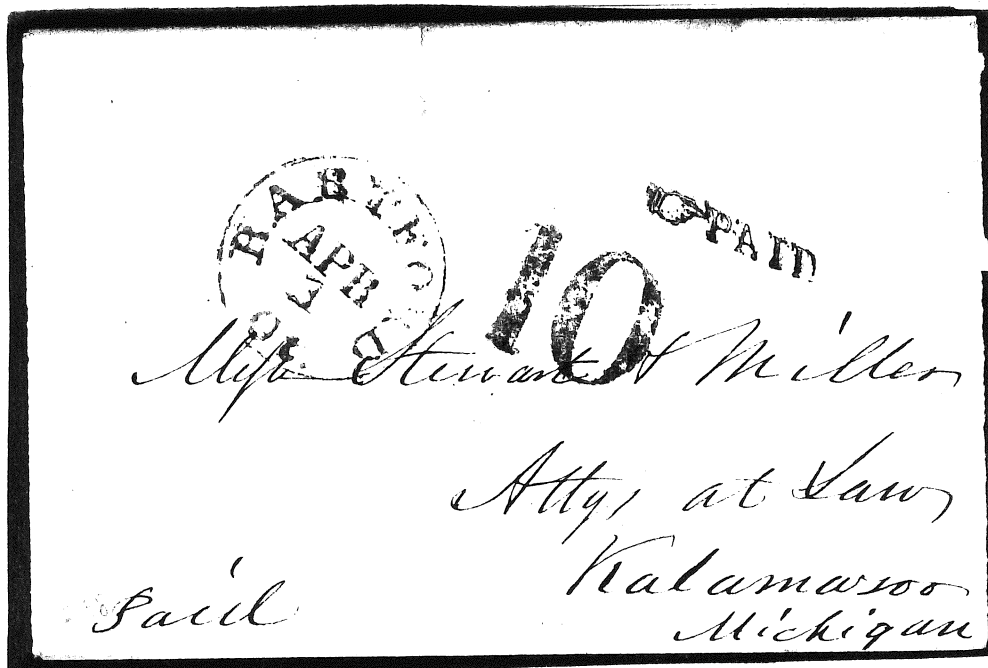 APR
7
10
PAID
Mess Stewart & Miller
Attys at Law
Kalamazoo
Michigan
Paid